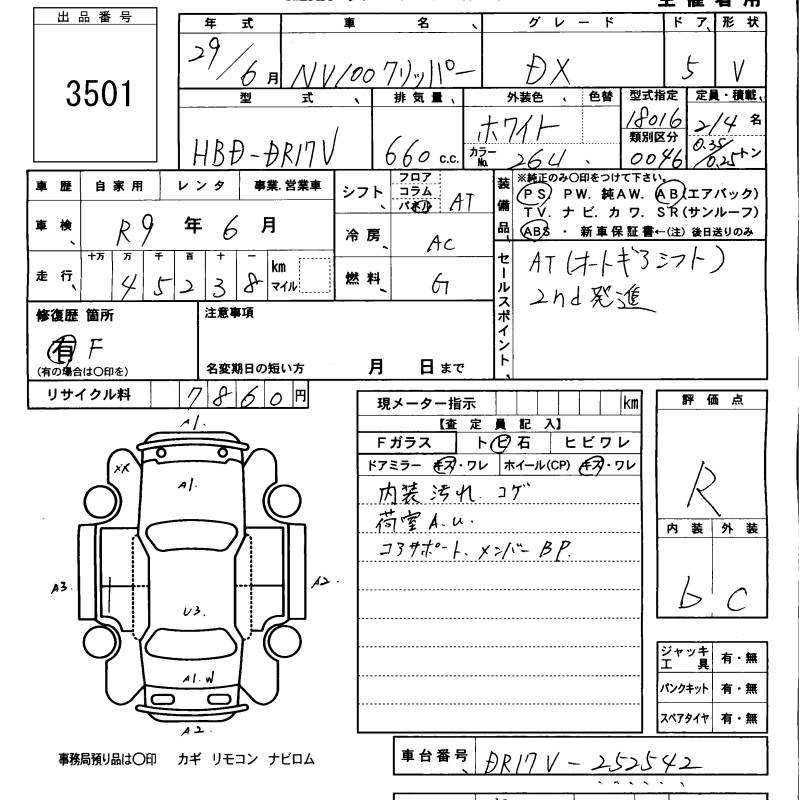 出品番号
3501
年式 車名 グレード ドア 形状
29/6月 NV100クリッパー DX 5 V
型式 排気量 外装色 色替 型式指定 定員・積載
HBD-DR17V 660 c.c. ホワイト 18016 2/4名
カラーNo. 264 類別区分 0046 0.35/0.25トン
車歴 自家用 レンタ 事業、営業車
車検 R9年6月
走行 十万 万 千 百 十 一 km マイル
45238
シフト フロア コラム パネル AT
冷房 AC
燃料 G
装備品
※純正のみ〇印をつけて下さい。
PS PW. 純AW. AB(エアバック)
TV. ナビ. カワ. SR(サンルーフ)
ABS ・ 新車保証書←(注) 後日送りのみ
セールスポイント
AT(オートギアシフト)
2nd発進
修復歴 箇所
有 F
(有の場合は〇印を)
注意事項
名変期日の短い方 月 日まで
リサイクル料 7860円
現メーター指示 km
【査定員記入】
Fガラス トビ石 ヒビワレ
ドアミラー キズ・ワレ ホイール(CP) キズ・ワレ
内装 汚れ. コゲ
荷室 A.U.
コアサポート. メンバー BP.
評価点
R
内装 外装
b C
ジャッキ工具 有・無
パンクキット 有・無
スペアタイヤ 有・無
A1.
XR
A1.
A3.
A2.
U3.
A1.W
A2.
事務局預り品は〇印 カギ リモコン ナビロム
車台番号 DR17V-252542